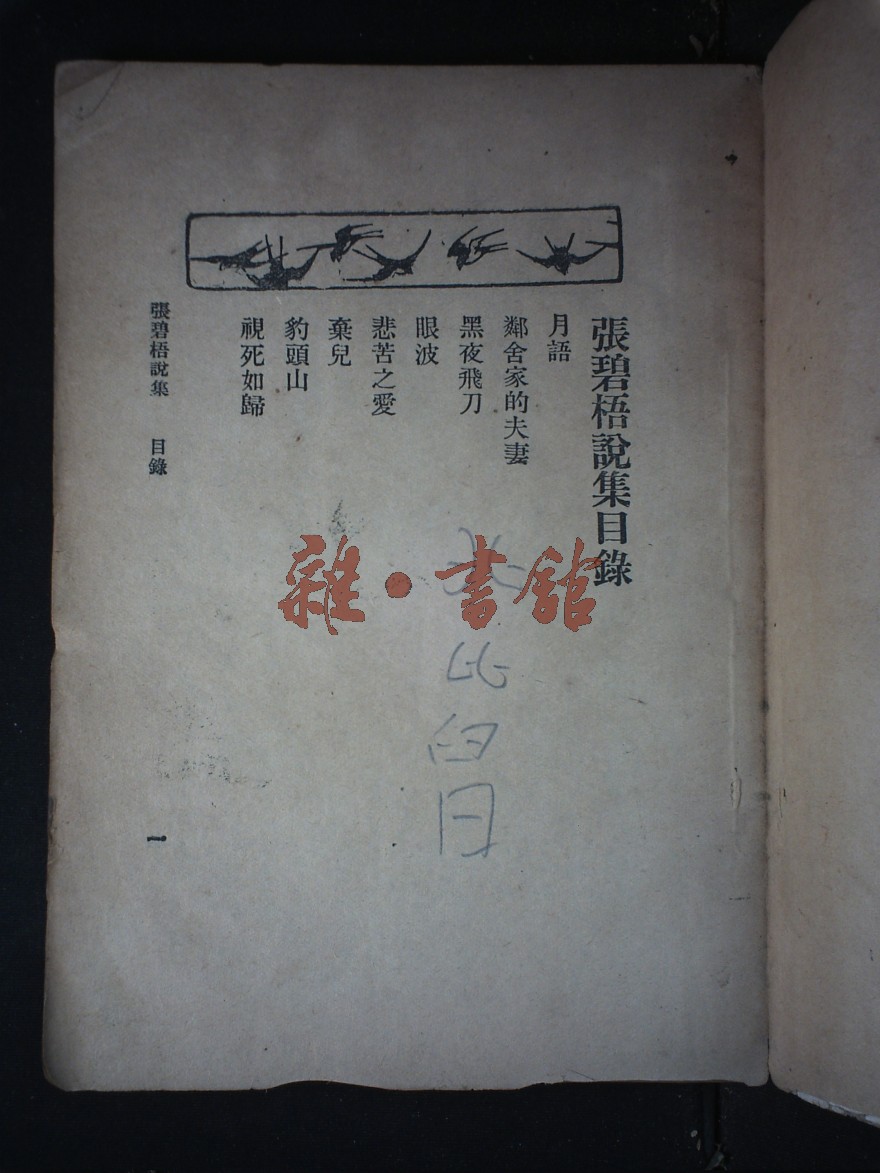 張碧梧說集目錄
月語
鄰舍家的夫妻
黑夜飛刀
眼波
悲苦之愛
棄兒
豹頭山
視死如歸
張碧梧說集 目錄
一
雜·書館